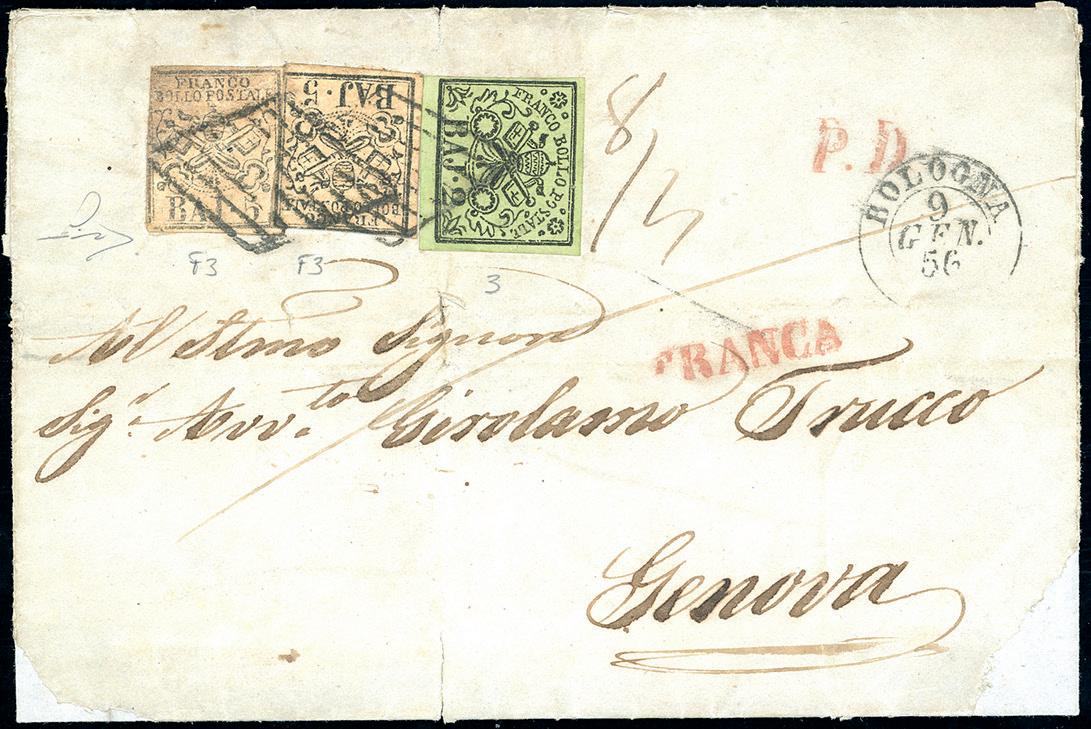 FRANCO
BOLLO POSTALE
BAJ. 5
BAJ. 5
FRANCO
BOLLO POSTALE
FRANCO BOLLO POSTALE
BAJ. 2
8/2
P. D.
BOLOGNA
9
GEN.
56
F3 F3 3
FRANCA
All' Illmo Signore
Sigr. Avvto Girolamo Trucco
Genova